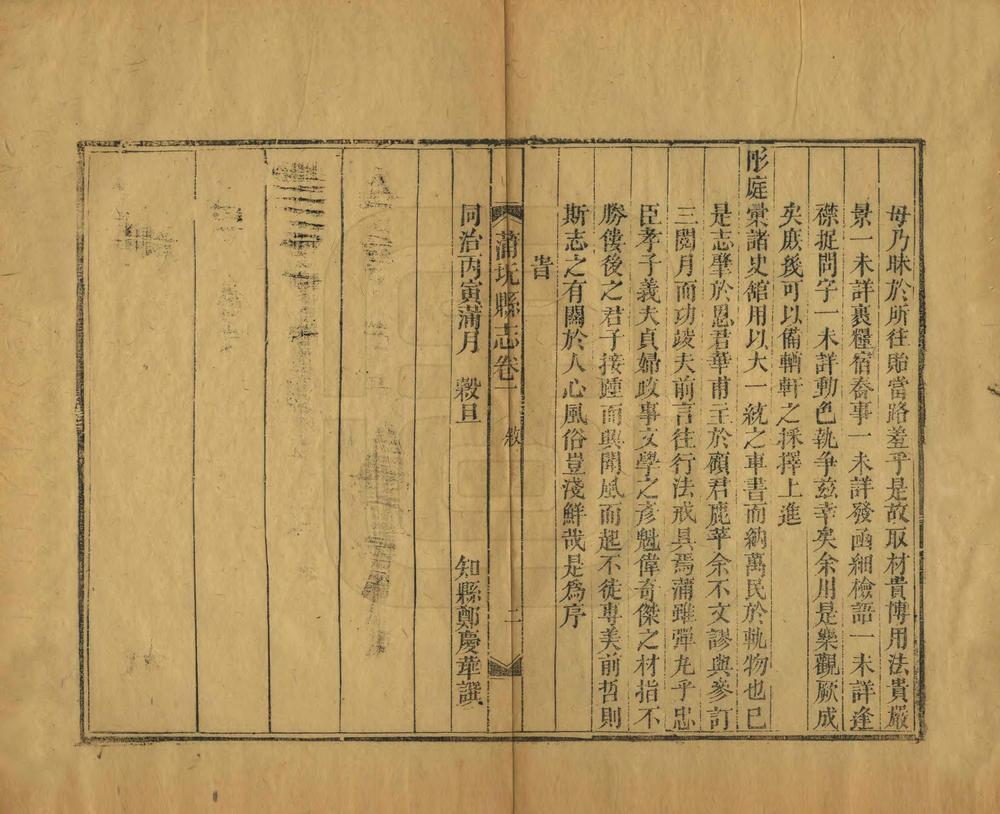 毋乃昧於所往貽當路羞乎是故取材貴博用法貴嚴
景一未詳裹糧宿舂事一未詳發函細檢語一未詳逢
襟捉問字一未詳動色執爭茲幸矣余用是樂觀厥成
矣庶幾可以備輶軒之採擇上進
彤庭彙諸史舘用以大一統之車書而納萬民於軌物也已
是志肇於恩君華甫王於顧君鹿苹余不文謬與參訂
三閱月而功竣夫前言往行法戒具焉蒲雖彈丸乎忠
臣孝子義夫貞婦政事文學之彥魁偉奇傑之材指不
勝僂後之君子接踵而興聞風而起不徒專美前哲則
斯志之有關於人心風俗豈淺鮮哉是爲序
旹
蒲圻縣志卷一 敘 二
同治丙寅蒲月 穀旦 知縣鄭慶華譔